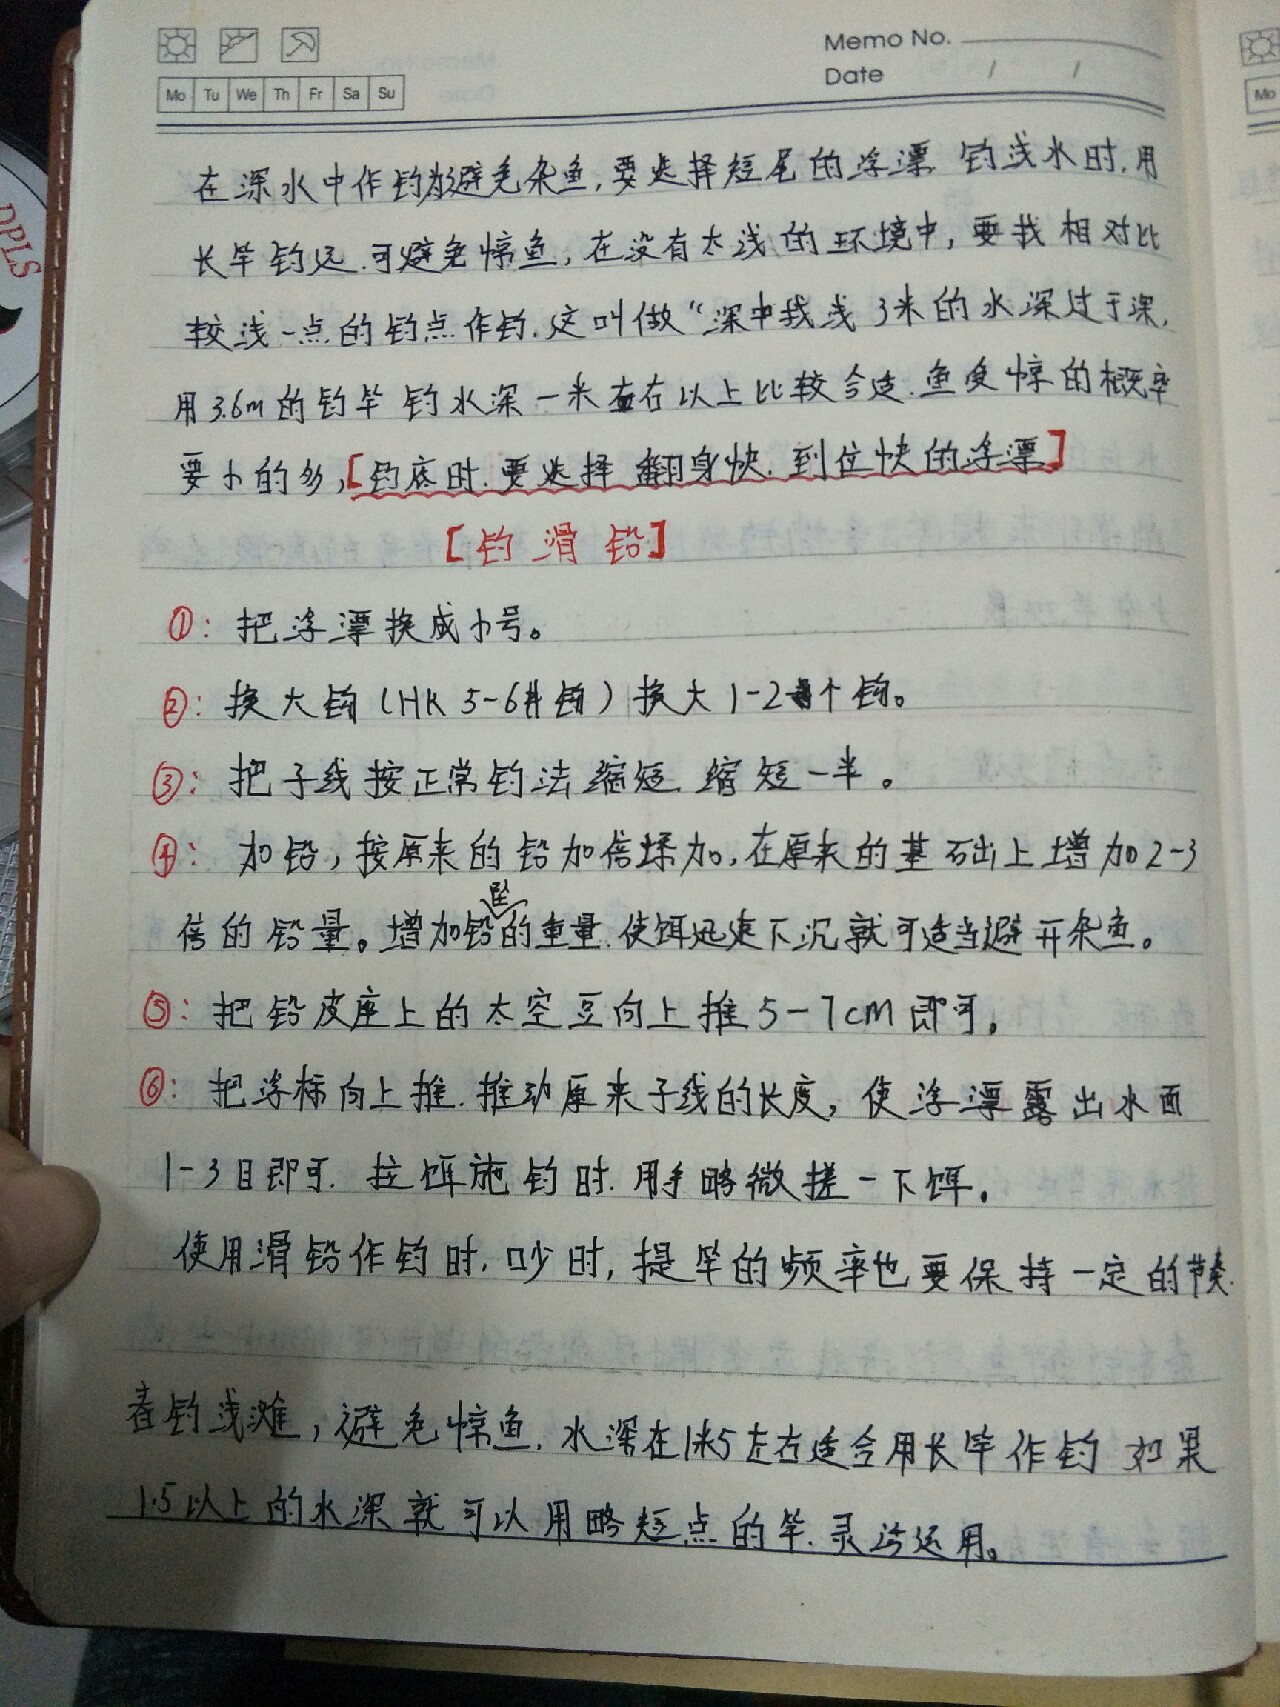 Memo No.
Date / /
Mo Tu We Th Fr Sa Su
Mo
DPLS
在深水中作钓为避免杂鱼,要选择短尾的浮漂 钓浅水时,用
长竿钓远.可避免惊鱼,在没有太浅的环境中,要找相对比
较浅一点的钓点作钓.这叫做“深中找浅 3米的水深过于深,
用3.6m的钓竿钓水深一米左右以上比较合适.鱼受惊的概率
要小的多,[钓底时.要选择翻身快.到位快的浮漂]
[钓滑铅]
①:把浮漂换成小号。
②:换大钩(HK 5-6#钩)换大1-2个钩。
③:把子线按正常钓法缩短.缩短一半。
④:加铅,按原来的铅加倍增加,在原来的基础上增加2-3
倍的铅量。增加铅坠的重量.使饵迅速下沉就可适当避开杂鱼。
⑤:把铅皮座上的太空豆向上推5-7cm即可。
⑥:把浮标向上推.推动原来子线的长度,使浮漂露出水面
1-3目即可.拉饵施钓时.用手略微搓一下饵.
使用滑铅作钓时,口少时,提竿的频率也要保持一定的节奏.
春钓浅滩,避免惊鱼.水深在1米5左右适合用长竿作钓 如果
1.5以上的水深就可以用略短点的竿.灵活运用。